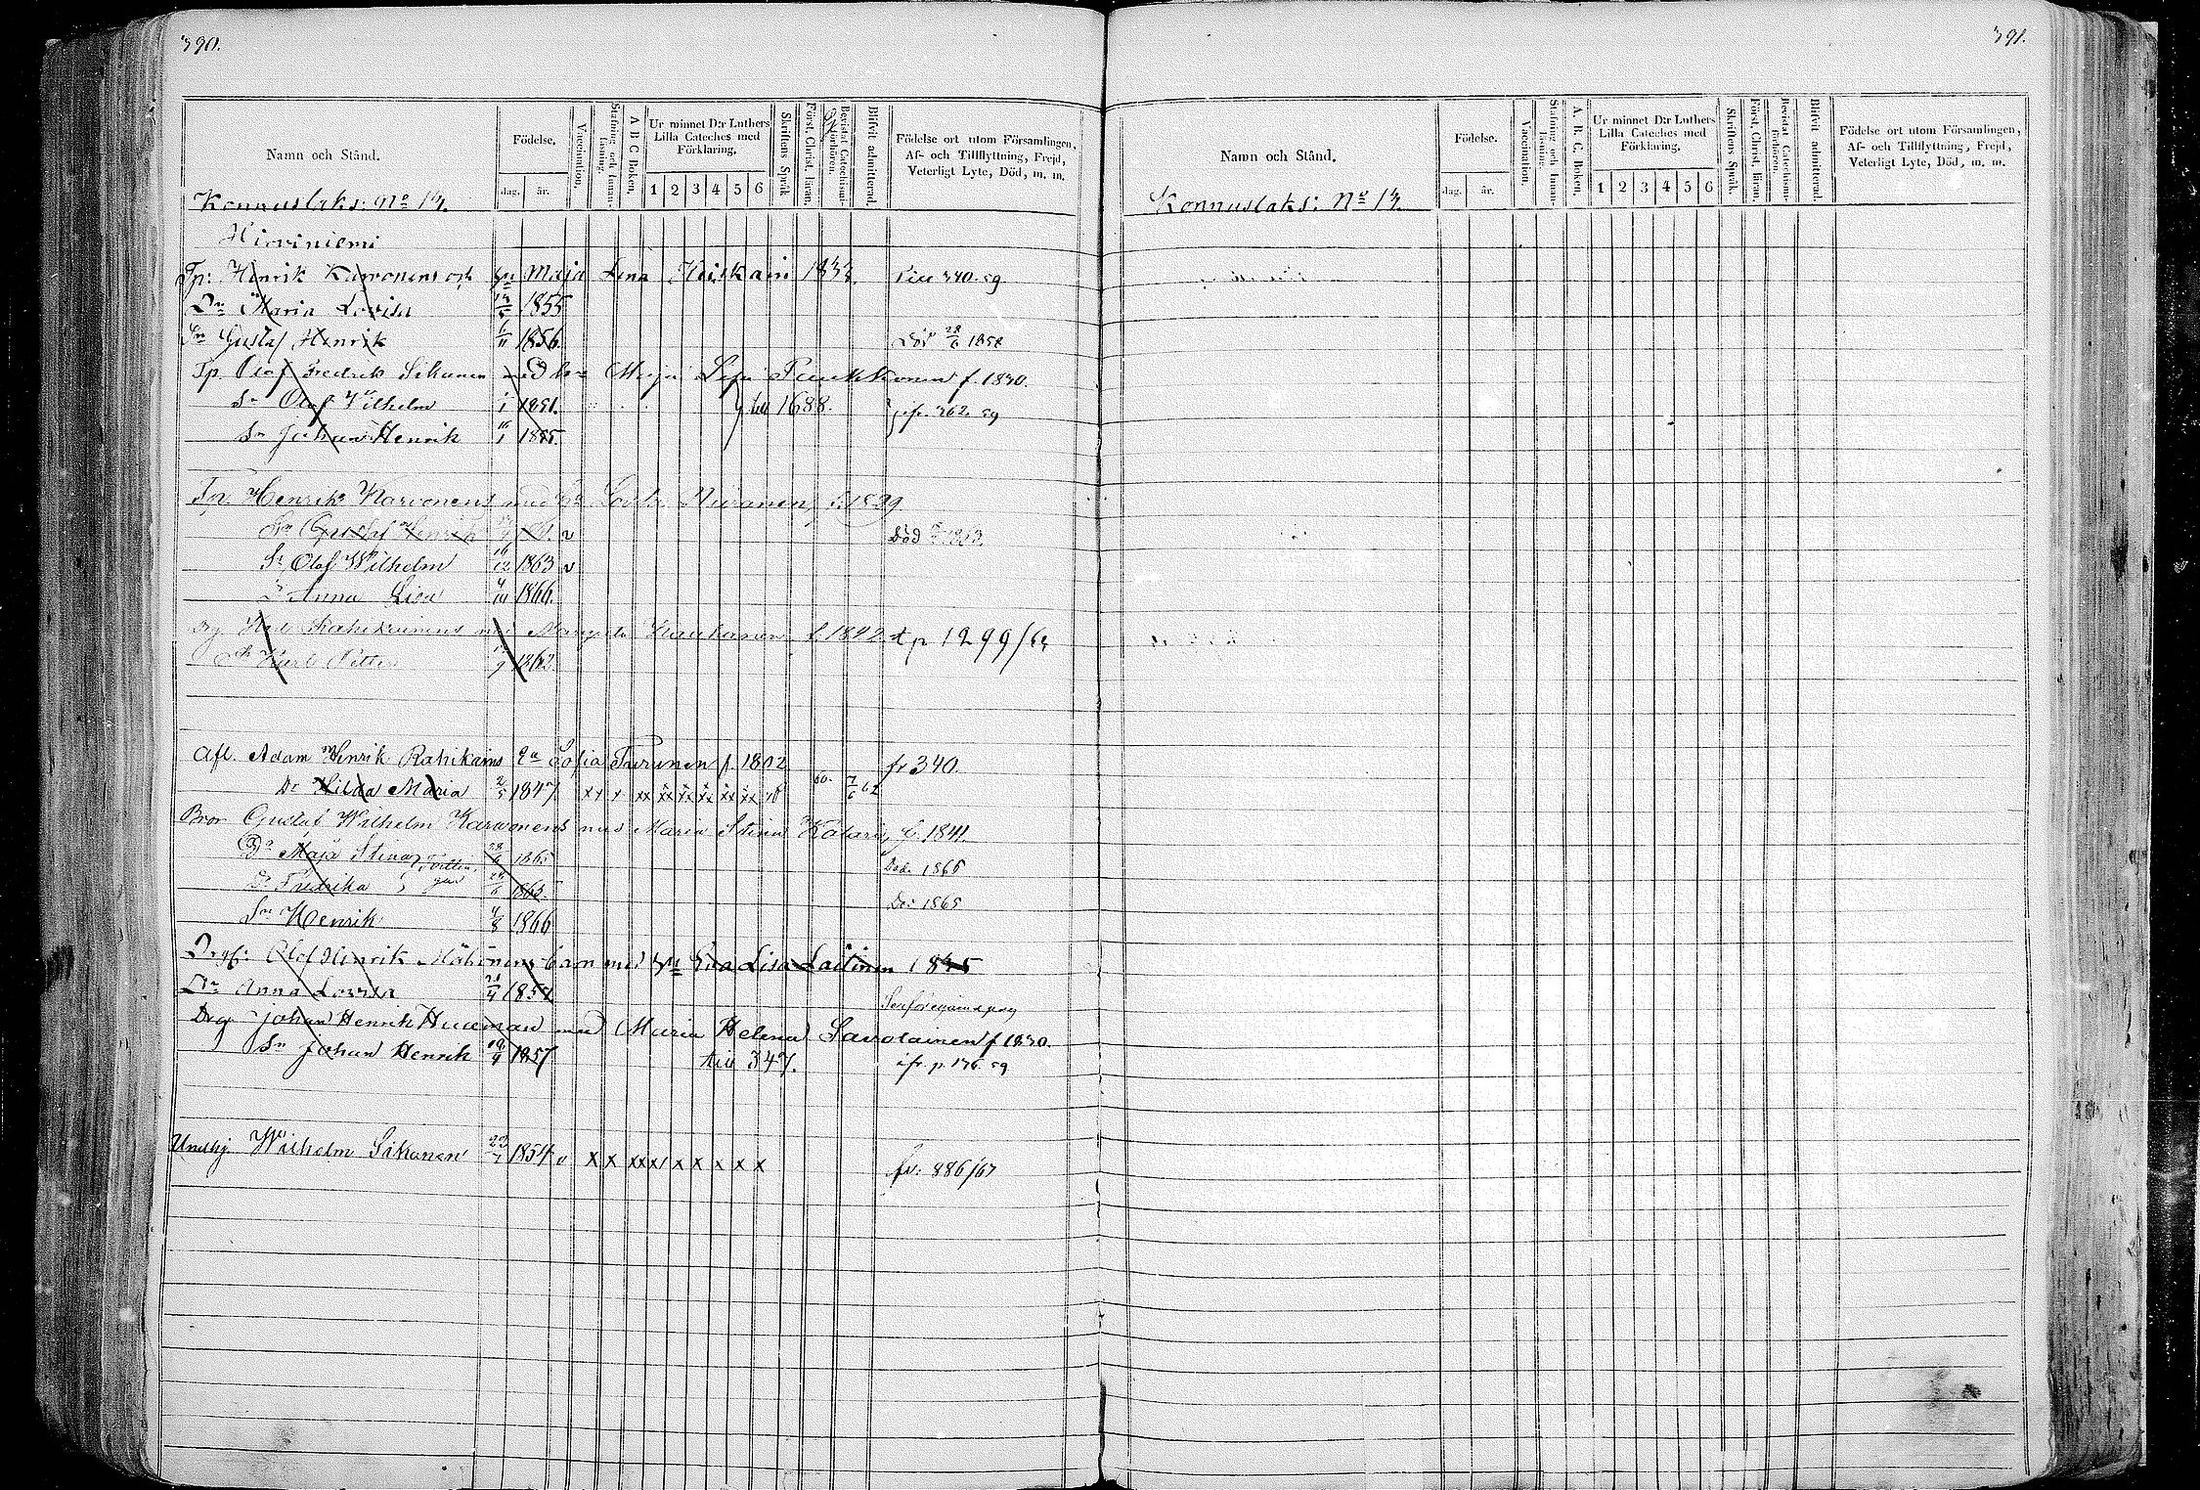 390.
Namn och Stånd.
Födelse.
dag. år.
Vaccination.
Stafning och Innanläsning.
A B C Boken.
Ur minnet D:r Luthers Lilla Cateches med Förklaring.
1 2 3 4 5 6
Skriftens Språk
Först. Christ. läran.
Bevistat Catechismi-förhören.
Blifvit admitterad.
Födelse ort utom Församlingen, Af- och Tillflyttning, Frejd, Veterligt Lyte, Död, m. m.
Konnuslaks: No 13.
Hirviniemi
Tp: Henrik Karvonens och Maja Lena Heiskain 1833. till 340. 59
Dr Maria Lovisa 1855
Sn Gustaf Henrik 6/11 1856. Död 28/6 1858
Tp. Olof Fredrik Sikanen med hu Maja Lisa Puukkonen f. 1830.
Sn Olof Wilhelm 1/1 1851. till 1688. ifr. 362. 59
Sn Johan Henrik 1855.
Tp. Henrik Karvonens med Lovisa f. 1839
Sn Gustaf Henrik v Död
Sn Olof Wilhelm 16/12 1863 v
Dr Anna Lisa 1866.
Margeta f. 1842. t p 1299/64
Karl Petter 1862
Afl. Adam Henrik Rahikains Ea Sofia Turunen f. 1802 fr 340.
Dr Hilda Maria 2/5 1847 x x x xx xx xx xx xx xx 60. 7/6 62
Bror Gustaf Wilhelm Karvonens med Maria Stina Katari, f. 1841.
Dr Maja Stina 1865 Död. 1865
Dr Fredrika 1865. Dö: 1865
Sn Henrik 4/8 1866
Drgf: Olof Henrik Mähönens barn med Eva Lisa Laitinen 1845
Dr Anna Lovisa 21/4 1851
Drg Johan Henrik med Maria Helena Savolainen f 1830.
Sn Johan Henrik 1857 till 347. ifr. p. 176. 59
Undhj. Wilhelm Sikanen 1854 v x x xx x x x x x x fr: 886/67
391.
Namn och Stånd.
Födelse.
dag. år.
Vaccination.
Stafning och Innanläsning.
A. B. C. Boken.
Ur minnet D:r Luthers Lilla Cateches med Förklaring.
1 2 3 4 5 6
Skriftens Språk.
Först. Christ. läran.
Bevistat Catechismi-förhören.
Blifvit admitterad.
Födelse ort utom Församlingen, Af- och Tillflyttning, Frejd, Veterligt Lyte, Död, m. m.
Konnuslaks: No 13